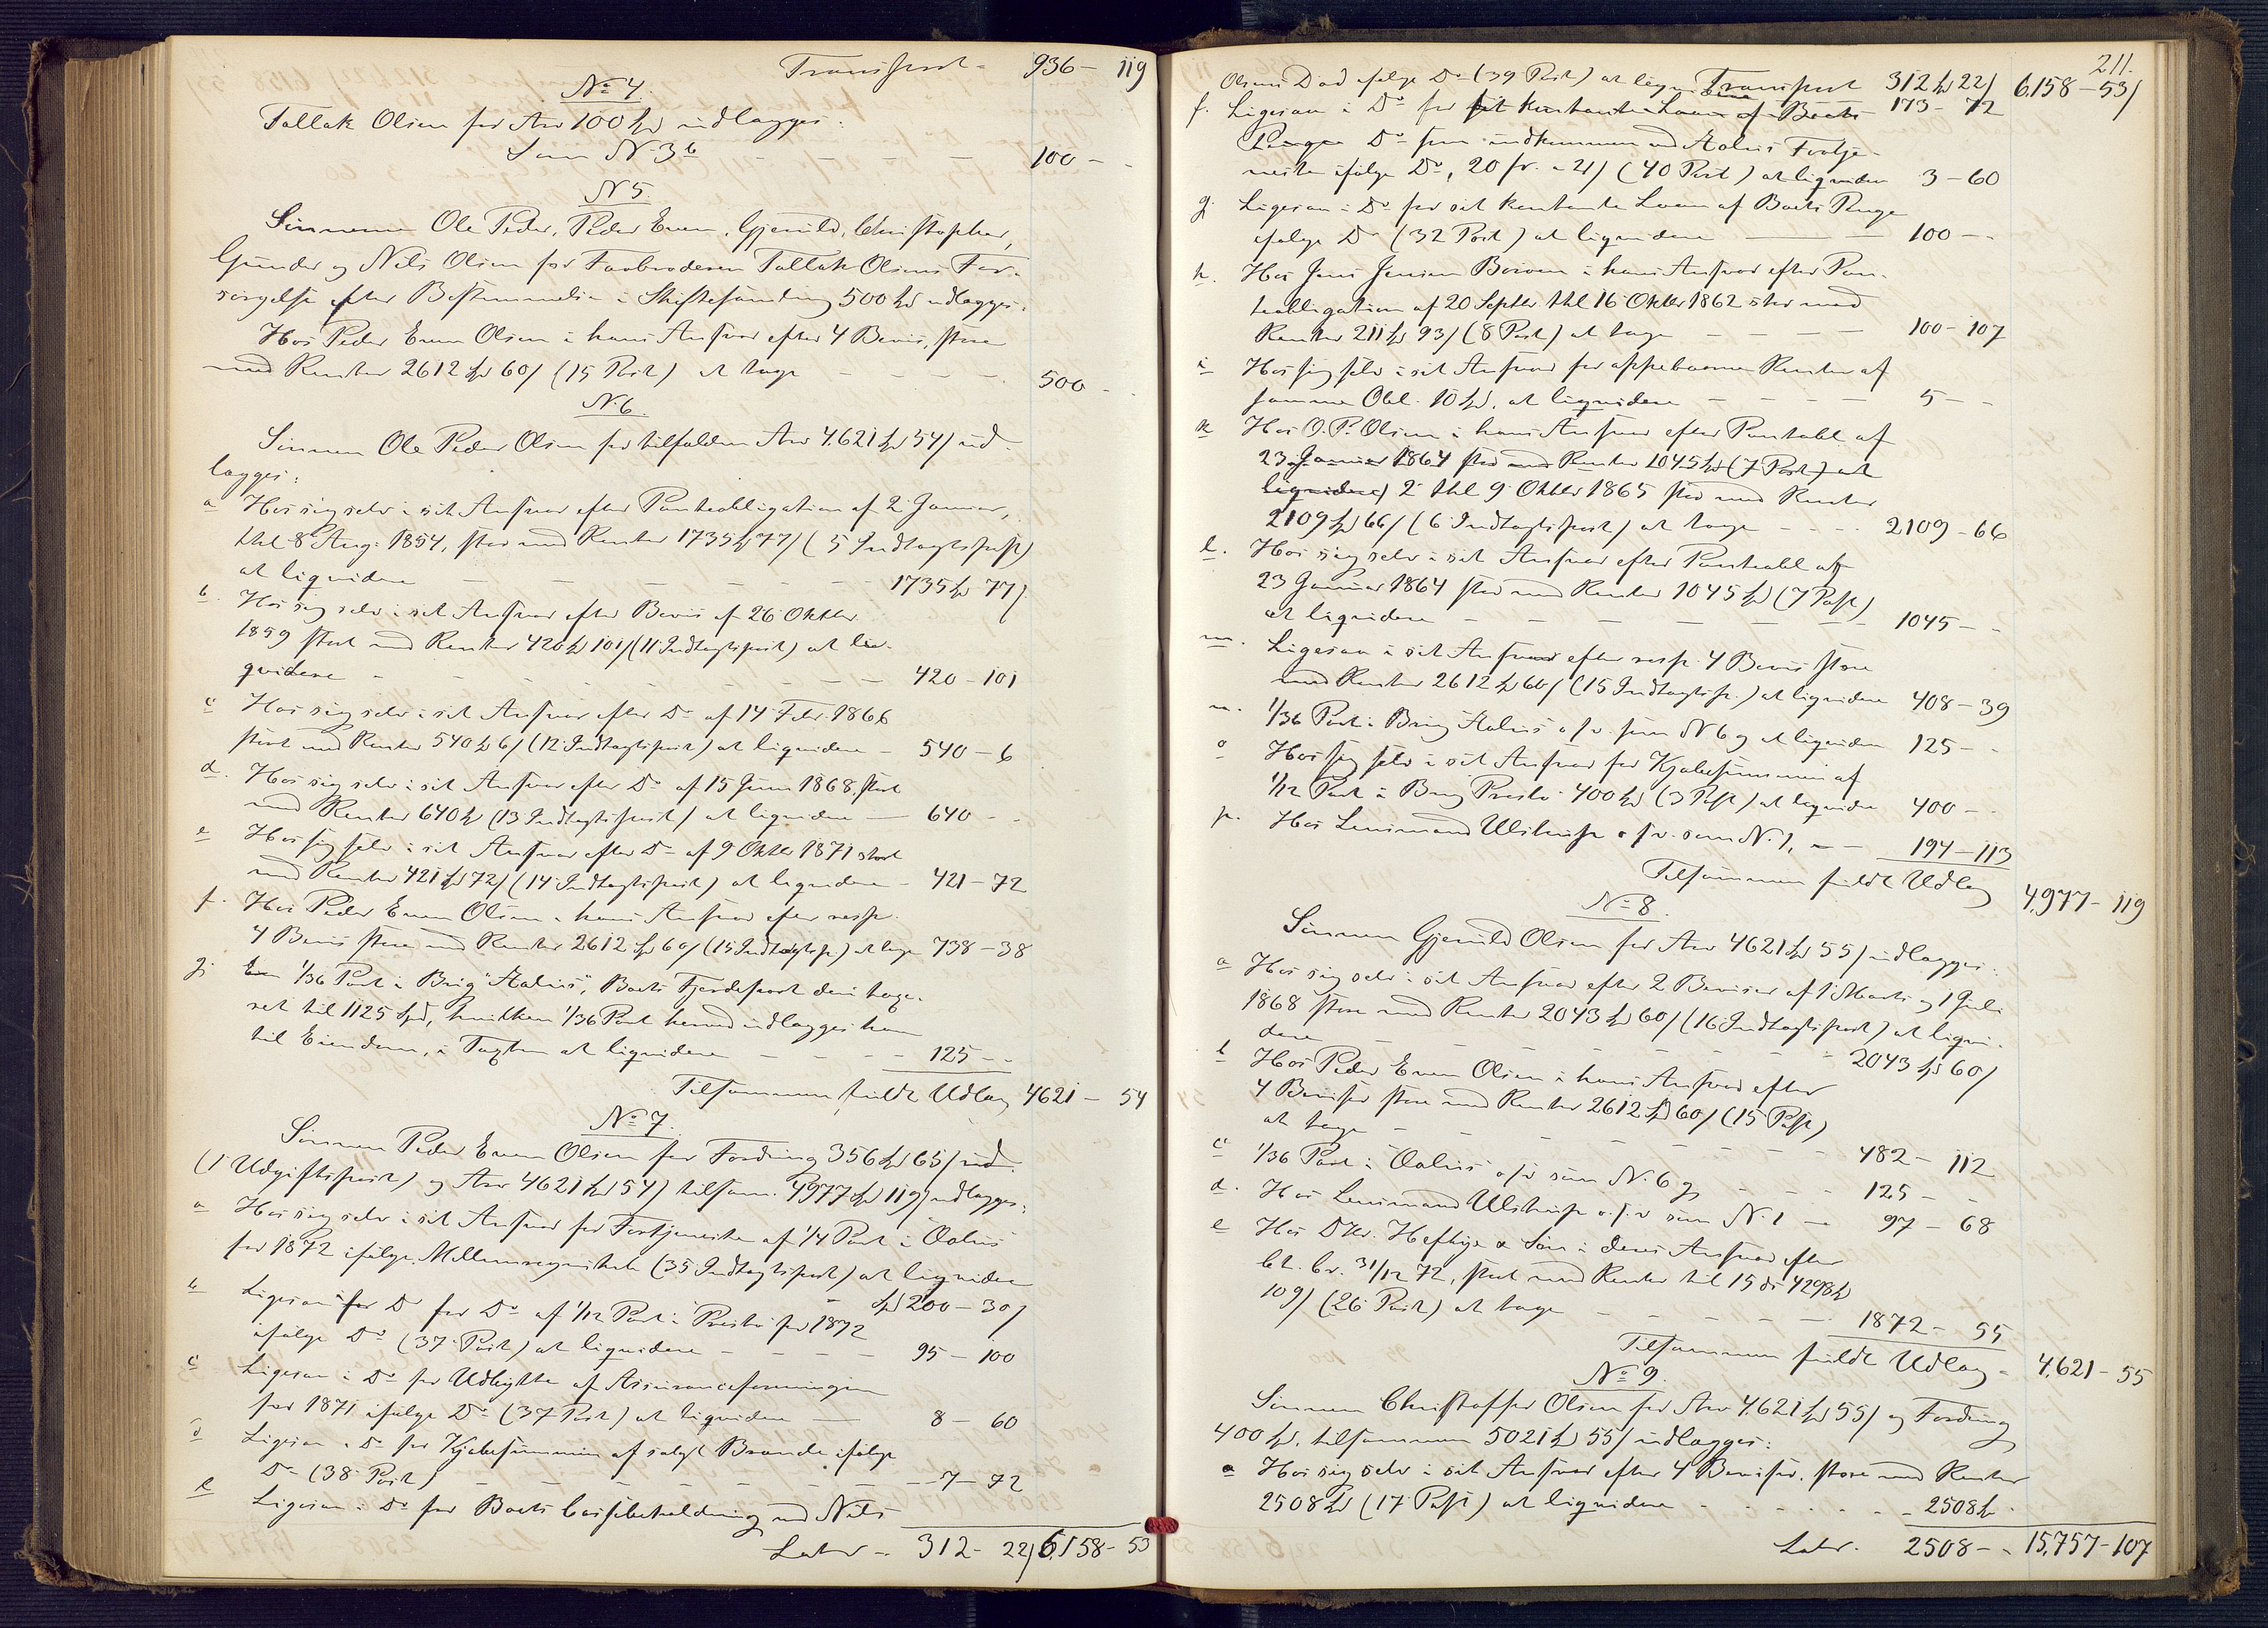 Transport - 936 - 119
No 4.
Tallak Olsen for Arv 100 Spd udlægges:
Som N. 3 b - - - - 100 - -
N 5.
Sønnerne Ole Peder, Peder Even, Gjeruld, Christopher,
Gunder og Nils Olsen for Farbroderen Tallak Olsens For-
sørgelse efter Bestemmelse i Skiftesamling 500 Spd udlægges:
Hos Peder Even Olsen i hans Ansvar efter 4 Bevis, store
med Renter 2612 Spd 60/ (15 Post) at tage - - - 500 -
N. 6.
Sønnen Ole Peder Olsen for tilfalden Arv 4621 Spd 54/ ud-
lægges:
a Hos sig selv i sit Ansvar efter Panteobligation af 2 Januar,
thl. 8 Aug: 1854, stor med Renter 1735 Spd 77/ (5 Indtægtspost)
at liqvidere - - - - - 1735 Spd 77/
b. Hos sig selv i sit Ansvar efter Bevis af 26 Oktbr
1859 stort med Renter 420 Spd 101/ (11 Indtægtspost) at li-
qvidere - - - - - 420 - 101
c Hos sig selv i sit Ansvar efter Do af 14 Febr. 1866
stort med Renter 540 Spd 6/ (12 Indtægtspost) at liqvidere - 540 - 6
d. Hos sig selv i sit Ansvar efter Do af 15 Juni 1868, stort
med Renter 640 Spd (13 Indtægtspost) at liqvidere - 640 - -
e Hos sig selv i sit Ansvar efter Do af 9 Oktbr 1871 stort
med Renter 421 Spd 72/ (14 Indtægtspost) at liqvidere - 421 - 72
f. Hos Peder Even Olsen i hans Ansvar efter resp.
4 Bevis store med Renter 2612 Spd 60/ (15 Indtægtsp.) at tage 738 - 38
g. 1/36 Part i Brig "Aalius", Boets Fjerdepart deri taxe-
ret til 1125 Spd, hvilken 1/36 Part herved udlægges ham
til Eiendom, i Taxten at liqvidere - - - - 125 - -
Tilsammen fuldt Udlæg 4621 - 54
No 7.
Sønnen Peder Even Olsen for Fordring 356 Spd 65/ ud.
(1 Udgiftspost) og Arv 4621 Spd 54/ tilsam. 4977 Spd 119/ udlægges:
a Hos sig selv i sit Ansvar for Fortjeneste af 1/4 Part i Aalius
for 1872 ifølge Mellemregnskab (35 Indtægtspost) at liqvidere
Spd 200 - 30/
b Ligesaa for Do for Do af 1/12 Part i Presto for 1872
ifølge Do (37 Post) at liqvidere - - - - 95 - 100
c Ligesaa i Do for Udbytte af Assuranceforeningen
for 1871 ifølge Do (37 Post) at liqvidere - 8 - 60
d Ligesaa i Do for Kjøbesummen af solgt Brænde ifølge
Do (38 Post) - - - - - - 7 - 72
e Ligesaa i Do for Boets Cassebeholdning ved Nils
Latus - 312 - 22/ 6,158 - 53
211.
Olsens Død ifølge Do (39 Post) at liqvidere Transport 312 Spd 22/ 6,158 - 53/
173 - 72
f. Ligesaa i Do for sit kontante Laan af Boets
Penge Do som indkommen ved Aalius Fortje-
neste ifølge Do, 20 fr. a 21/ (40 Post) at liqvidere 3 - 60
g. Ligesaa i Do for sit kontante Laan af Boets Penge
ifølge Do (32 Post) at liqvidere - - 100 - -
h. Hos Jens Jensen Boroen i hans Ansvar efter Pan-
teobligation af 20 Septbr thl 16 Oktbr 1862 stor med
Renter 211 Spd 93/ (8 Post) at tage - - - 100 - 107
i Hos sig selv i sit Ansvar for oppebaarne Renter af
samme Obl. 10 Spd. at liqvidere - - - - 5 - -
k Hos O. P. Olsen i hans Ansvar efter Panteobl. af
23 Januar 1864 stor med Renter 1045 Spd (7 Post) at
liqvidere) 2 thl 9 Oktbr 1865 stor med Renter
2109 Spd 66/ (6 Indtægtspost) at tage - - - 2109 - 66
l. Hos sig selv i sit Ansvar efter Panteobl. af
23 Januar 1864 stor med Renter 1045 Spd (7 Post)
at liqvidere - - - - - - 1045 - -
m. Ligesaa i sit Ansvar efter resp. 4 Bevis store
med Renter 2612 Spd 60/ (15 Indtægtsp.) at liqvidere 408 - 39
n. 1/36 Part i Brig Aalius o/v. som N 6 g at liqvidere 125 - -
o Hos sig selv i sit Ansvar for Kjøbesummen af
1/12 Part i Brig Presto 400 Spd (3 Post) at liqvidere 400 - -
p. Hos Lensmand Ulstrup o. s. v. som N. 1, - - 194 - 113
Tilsammen fuldt Udlæg 4,977 - 119
No 8.
Sønnen Gjeruld Olsen for Arv 4621 Spd 55/ udlægges:
a Hos sig selv i sit Ansvar efter 2 Beviser af 1 Marts og 1 Juli
1868 store med Renter 2043 Spd 60/ (16 Indtægtspost) at liqvi-
dere - - - - - 2043 Spd 60/
b Hos Peder Even Olsen i hans Ansvar efter
4 Beviser store med Renter 2612 Spd 60/ (15 Post)
at tage - - - - - 482 - 112
c 1/36 Part i Aalius o/v som N. 6 g - - - 125 - -
d. Hos Lensmand Ulstrup o. s. v som N. 1 - 97 - 68
e Hos DHr. Heftye & Søn i deres Ansvar efter
Ct. Cr. 31/12 72, stort med Renter til 15 ds 4298 Spd
109/ (26 Post) at tage - - - - - 1872 - 55
Tilsammen fuldt Udlæg - 4,621 - 55
No 9.
Sønnen Christoffer Olsen for Arv 4,621 Spd 55/ og Fordring
400 Spd. tilsammen 5021 Spd 55/ udlægges:
a Hos sig selv i sit Ansvar efter 4 Beviser, store med Renter
2508 Spd (17 Post) at liqvidere - - - - - 2508 Spd
Latus. 2508 - - 15,757 - 107